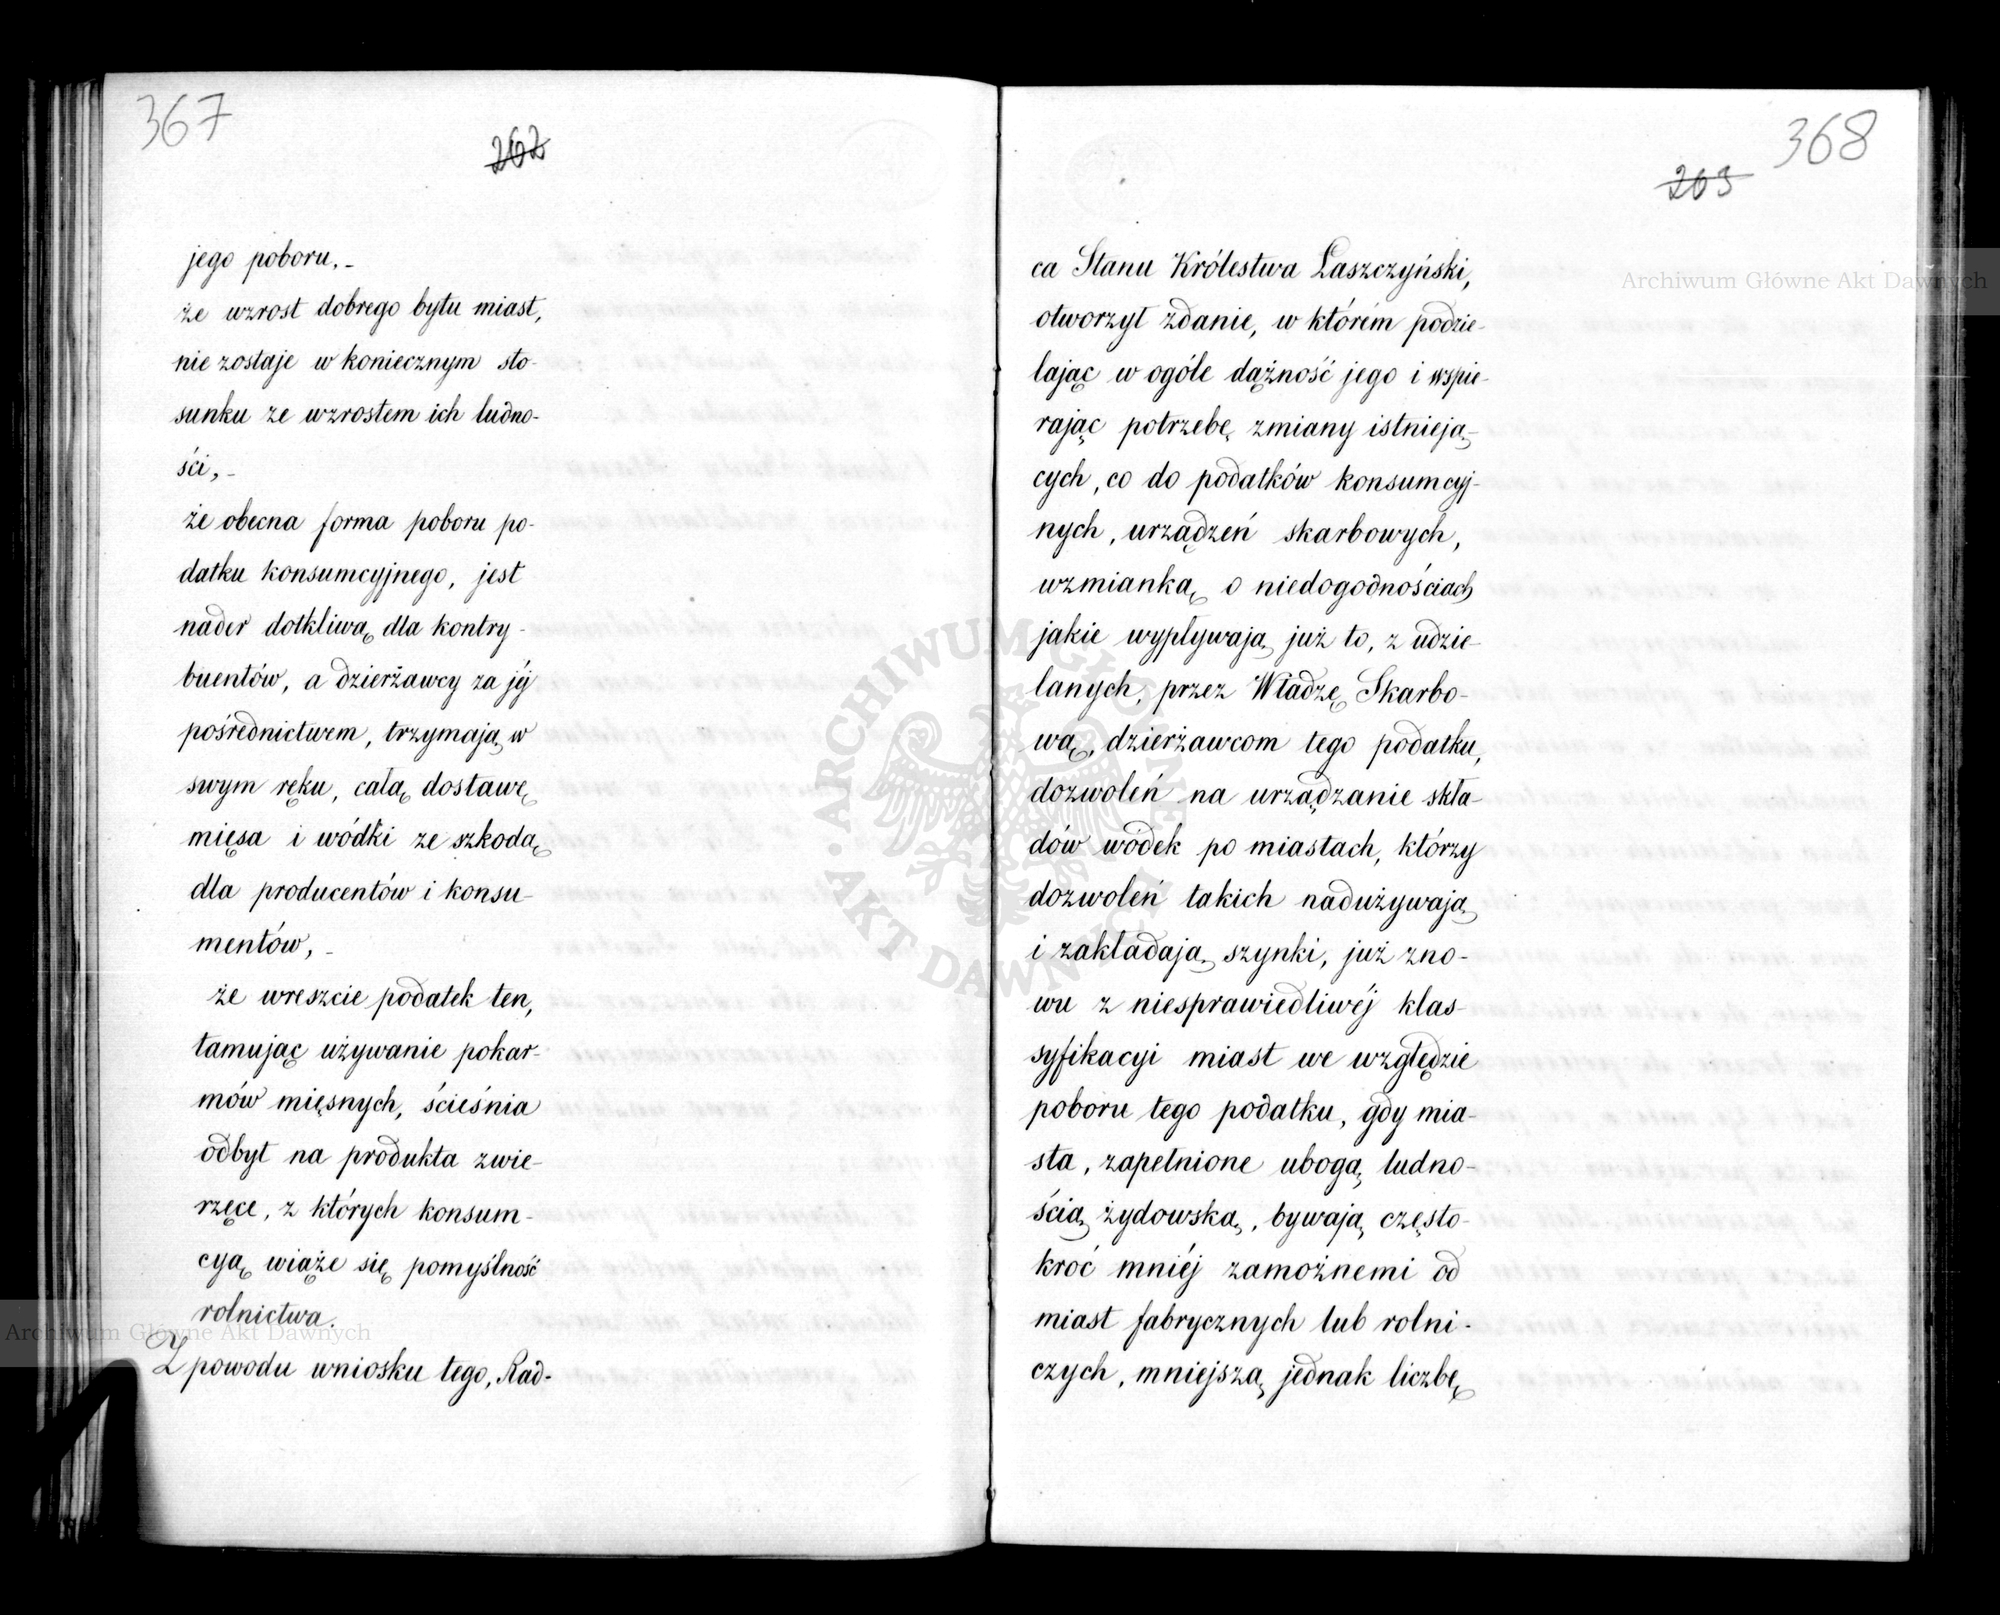 367
262
jego poboru,-
że wzrost dobrego bytu miast,
nie zostaje w koniecznym sto-
sunku ze wzrostem ich ludno-
ści,-
że obecna forma poboru po-
datku konsumcyjnego, jest
nader dotkliwą dla kontry-
buentów, a dzierżawcy za jéj
pośrednictwem, trzymają w
swym ręku, całą dostawę
mięsa i wódki ze szkodą
dla producentów i konsu-
mentów,-
że wreszcie podatek ten,
tamując używanie pokar-
mów mięsnych, ścieśnia
odbyt na produkta zwie-
rzęce, z których konsum-
cyą wiąże się pomyślność
rolnictwa.
Z powodu wniosku tego, Rad-
368
263
ca Stanu Królestwa Łaszczyński,
otworzył zdanie, w którem podzie-
lając w ogóle dążność jego i wspie-
rając potrzebę zmiany istnieją-
cych, co do podatków konsumcyj-
nych, urządzeń skarbowych,
wzmianką o niedogodnościach
jakie wypływają już to, z udzie-
lanych, przez Władzę Skarbo-
wą, dzierżawcom tego podatku,
dozwoleń na urządzanie skła-
dów wódek po miastach, którzy
dozwoleń takich nadużywają
i zakładają szynki, już zno-
wu z niesprawiedliwéj klas-
syfikacyi miast we względzie
poboru tego podatku, gdy mia-
sta, zapełnione ubogą ludno-
ścią żydowską, bywają często-
kroć mniéj zamożnemi od
miast fabrycznych lub rolni-
czych, mniejszą jednak liczbę
Archiwum Główne Akt Dawnych
Archiwum Główne Akt Dawnych
ARCHIWUM GŁÓWNE · AKT DAWNYCH ·